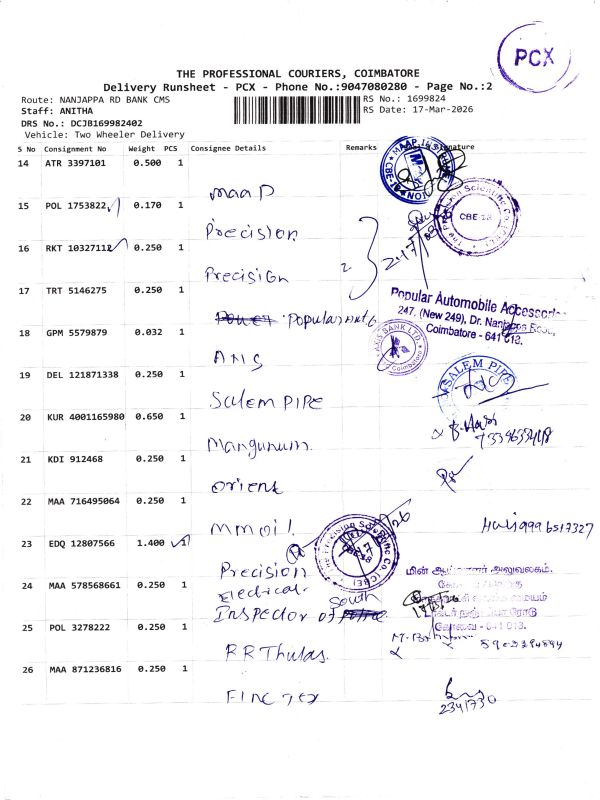 PCX
THE PROFESSIONAL COURIERS, COIMBATORE
Delivery Runsheet - PCX - Phone No.:9047080280 - Page No.:2
Route: NANJAPPA RD BANK CMS
RS No.: 1699824
Staff: ANITHA
RS Date: 17-Mar-2026
DRS No.: DCJB169982402
Vehicle: Two Wheeler Delivery
S No Consignment No Weight PCS Consignee Details Remarks Signature
14 ATR 3397101 0.500 1
Maap
15 POL 1753822 0.170 1
Precision
CBE-18
16 RKT 10327112 0.250 1
Precision
2
17 TRT 5146275 0.250 1
Popular Auto
Popular Automobile Accessories
247, (New 249), Dr. Nanjappa Road,
Coimbatore - 641 018.
18 GPM 5579879 0.032 1
AXIS BANK LTD.
Coimbatore
19 DEL 121871338 0.250 1
Salem PIPE
SALEM PIPE
20 KUR 4001165980 0.650 1
Mangunum
21 KDI 912468 0.250 1
Orient
22 MAA 716495064 0.250 1
MM oil
9996517327
23 EDQ 12807566 1.400 1
Precision
The Precision Scientific Co. (CBE)
CBE-18
24 MAA 578568661 0.250 1
Electrical
Inspector of South
மின் ஆய்வாளர் அலுவலகம்,
கோவை - 641 018.
25 POL 3278222 0.250 1
RR Thulas
26 MAA 871236816 0.250 1
Finctex
2341730